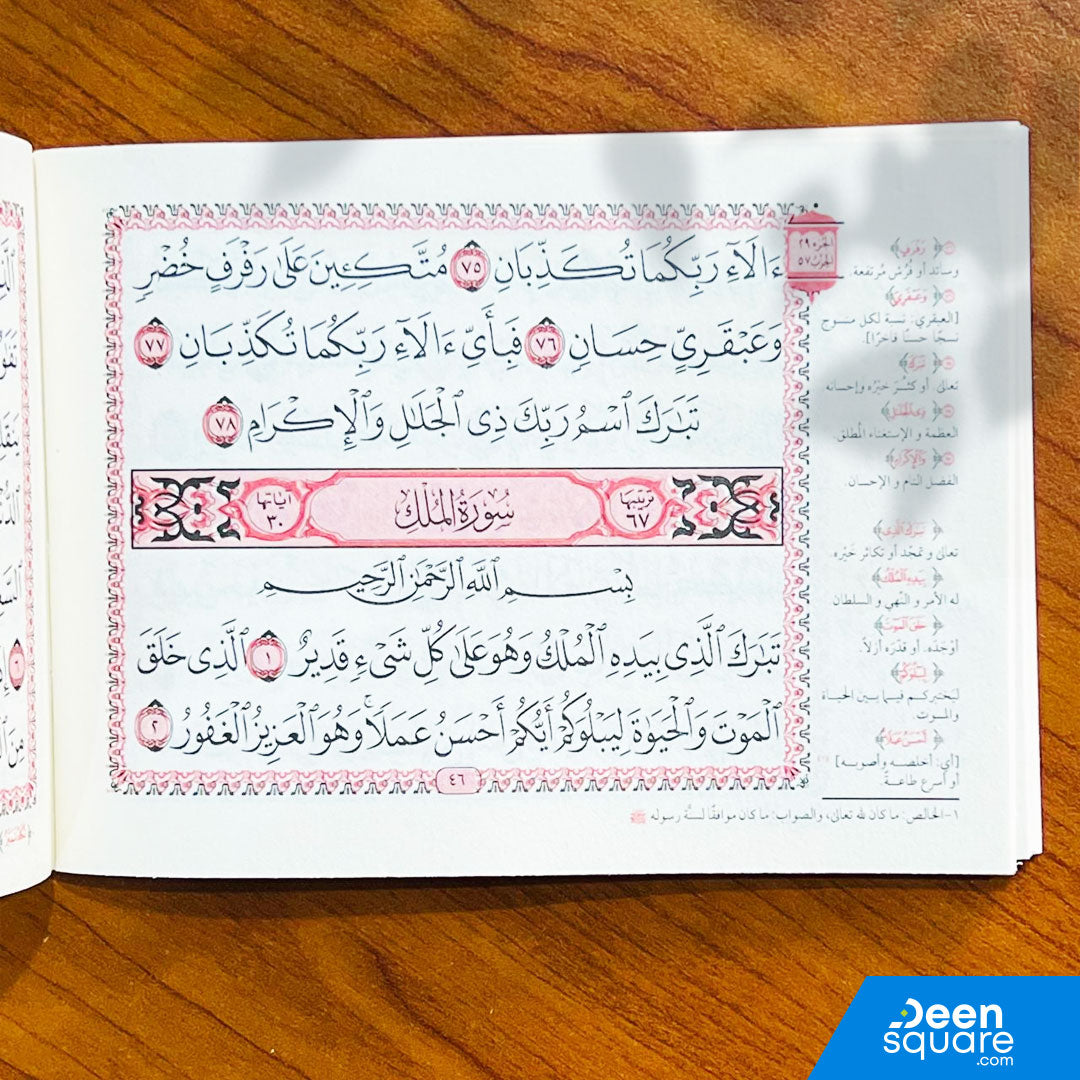 ءَالَآءِ رَبِّكُمَا تُكَذِّبَانِ ٧٥ مُتَّكِـِٔينَ عَلَىٰ رَفْرَفٍ خُضْرٍ
وَعَبْقَرِيٍّ حِسَانٍ ٧٦ فَبِأَيِّ ءَالَآءِ رَبِّكُمَا تُكَذِّبَانِ ٧٧
تَبَٰرَكَ ٱسْمُ رَبِّكَ ذِى ٱلْجَلَٰلِ وَٱلْإِكْرَامِ ٧٨
ترتيبها ٦٧ سُورَةُ المُلْكِ آياتها ٣٠
بِسْمِ ٱللَّهِ ٱلرَّحْمَٰنِ ٱلرَّحِيمِ
تَبَٰرَكَ ٱلَّذِى بِيَدِهِ ٱلْمُلْكُ وَهُوَ عَلَىٰ كُلِّ شَىْءٍ قَدِيرٌ ١ ٱلَّذِى خَلَقَ
ٱلْمَوْتَ وَٱلْحَيَوٰةَ لِيَبْلُوَكُمْ أَيُّكُمْ أَحْسَنُ عَمَلًا ۚ وَهُوَ ٱلْعَزِيزُ ٱلْغَفُورُ ٢
٤٦
الجزء ٢٩
الحزب ٥٧
﴿رَفْرَفٍ﴾
وسائد أو فُرُش مُرتفعة
﴿وَعَبْقَرِيٍّ﴾
[العبقري: نسبة لكل منسوج
نسجًا حسنًا فاخرًا].
﴿تَبَٰرَكَ﴾
تعالى أو كثُر خَيْرُه وإحسانه
﴿ذِى ٱلْجَلَٰلِ﴾
العظمة و الإستغناء المُطلق.
﴿وَٱلْإِكْرَامِ﴾
الفضل التام و الإحسان.
﴿تَبَٰرَكَ ٱلَّذِى﴾
تعالى و تمجَّد أو تكاثر خَيْرُه.
﴿بِيَدِهِ ٱلْمُلْكُ﴾
له الأمر و النَّهي و السلطان
﴿خَلَقَ ٱلْمَوْتَ﴾
أوْجَدَه. أو قدَّره أزلًا.
﴿لِيَبْلُوَكُمْ﴾
ليَختبركم فيما بين الحياة
والموت
﴿أَحْسَنُ عَمَلًا﴾
[أي: أخلصه وأصوبه]
أو أسرع طاعةً.
١-الخالص: ما كان لله تعالى، والصواب: ما كان موافقًا لسنَّة رسوله ﷺ
Deen
square
.com